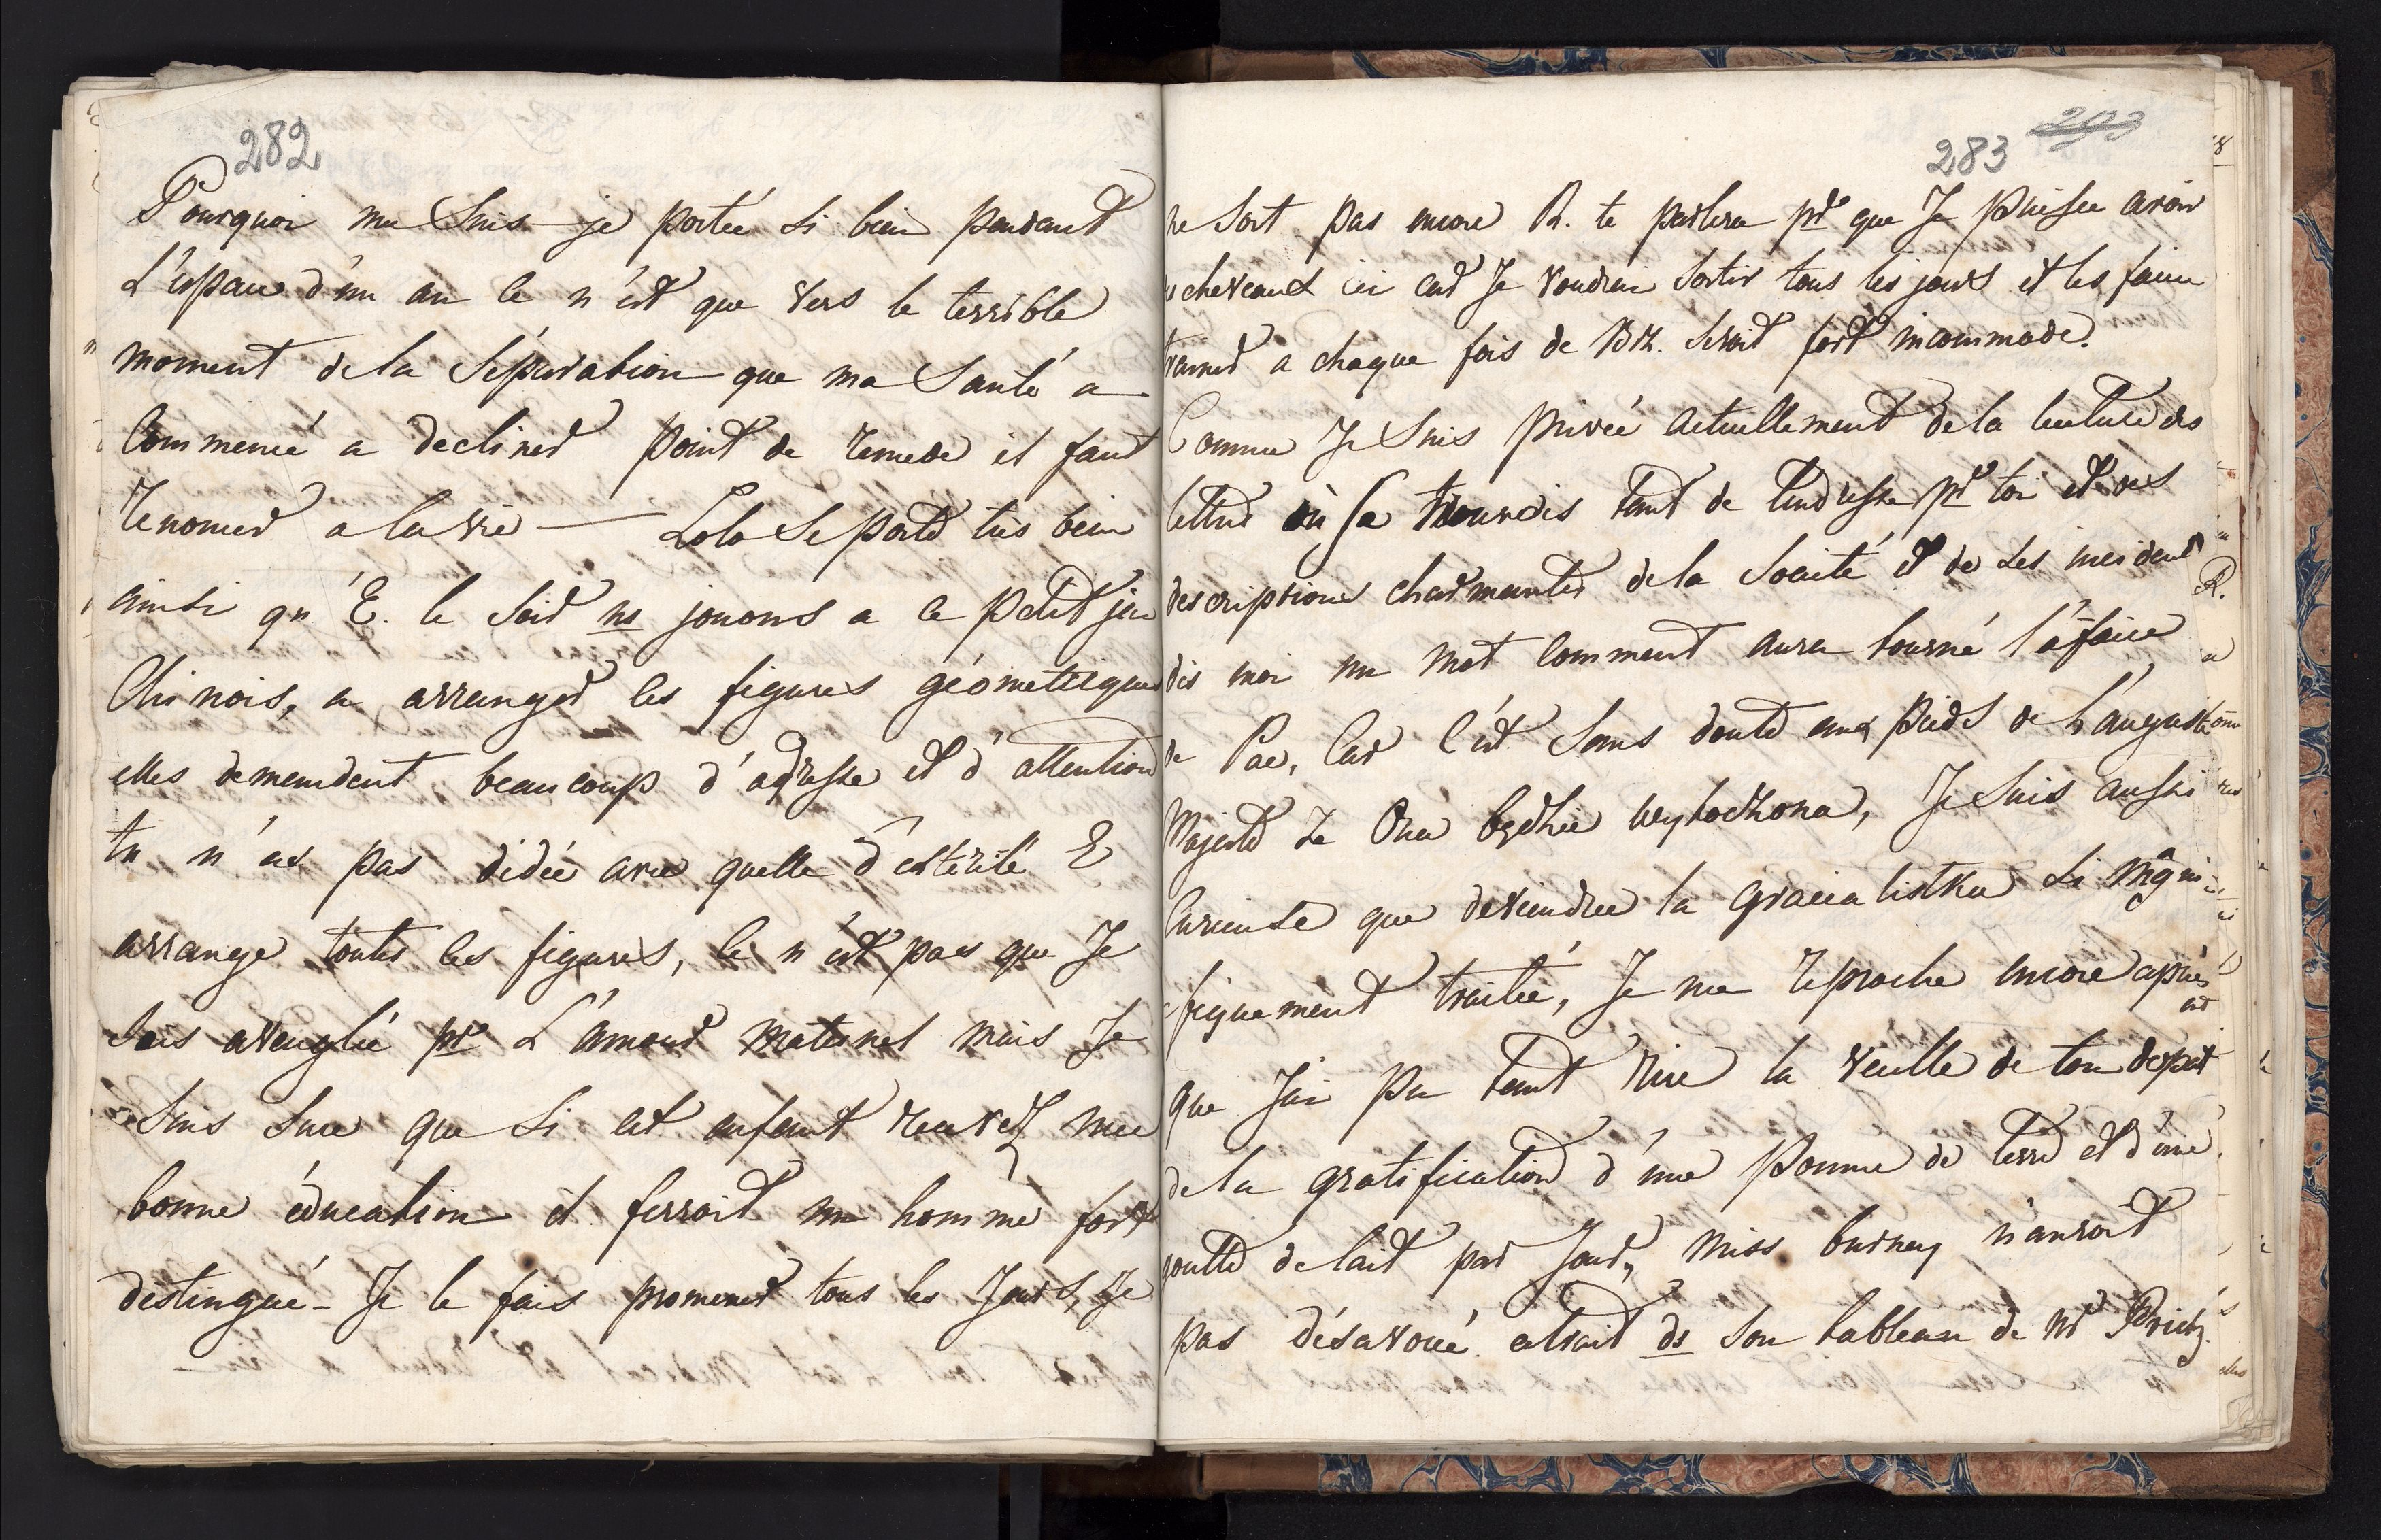 282
Pourquoi me suis-je portée si bien pendant
L'espace d'un an ce n'est que vers le terrible
moment de la séparation que ma santé a
commencé a decliner point de remede il faut
renoncer a la vie — Lolo se porte très bien
ainsi qu'E. le soir ns jouons a ce petit jeu
Chinois, a arranger les figures géometriques
elles demendent beaucoup d'adresse et d'attention
tu n'as pas didée avec quelle d'exterité E
arrange toutes les figures, ce n'est pas que Je
sois aveuglé pr L'amour maternel mais Je
suis sure que si cet enfant recevoit une
bonne éducation il ferroit un homme fort
destingué - Je le fais promener tous les Jours, Je
283 203
ne sort pas encore R. te parlera pr que Je puisse avoir
chevaux ici car Je voudrai sortir tous les jours et les faire
trainer a chaque fois de Brz. seroit fort incommode.
Comme Je suis privée actuellement de la lecture des
lettres où Je trouvois tant de tendresse pr toi et des
descriptions charmantes de la société et de ses incidents
dis moi un mot comment aura tourné l'afaire
de Pac, car c'est sans doute aux pieds de L'auguste
Majesté ze Ona bedzie wychodzona, Je suis aussi
curieuse que deviendra la gracialistka si magni-
fiquement traitée, Je me reproche encore après
que J'ai pu tant rire la veille de ton depart
de la gratification d'une pomme de terre et d'une
goutte de lait par Jour, miss burney n'auroit
pas désavoué ce trait ds son tableau de Mr